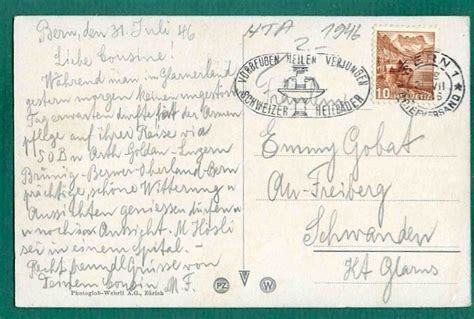 Bern, den 31. Juli 46
HTA 1946
2.–
Liebe Cousine!
Während man im Glarnerland
gestern morgen keinen
Tag erwarten durfte der Armen
pflege auf ihrer Reise via
S O B n Arth-Goldau-Luzern
Brünig-Berner-Oberland-Bern
prächtige, schöne Witterung u
Aussichten geniessen
u noch in Aussicht. M Hösli
ist in einem Spital.
Recht freundl Grüsse von
Deinem Cousin M. F.
VORBEUGEN HEILEN VERJÜNGEN
SCHWEIZER HEILBÄDER
BERN 1
BRIEFVERSAND
10 HELVETIA
Emmy Gobat
Au-Freiberg
Schwanden
Kt Glarus
Photoglob-Wehrli A.G., Zürich
PZ
W